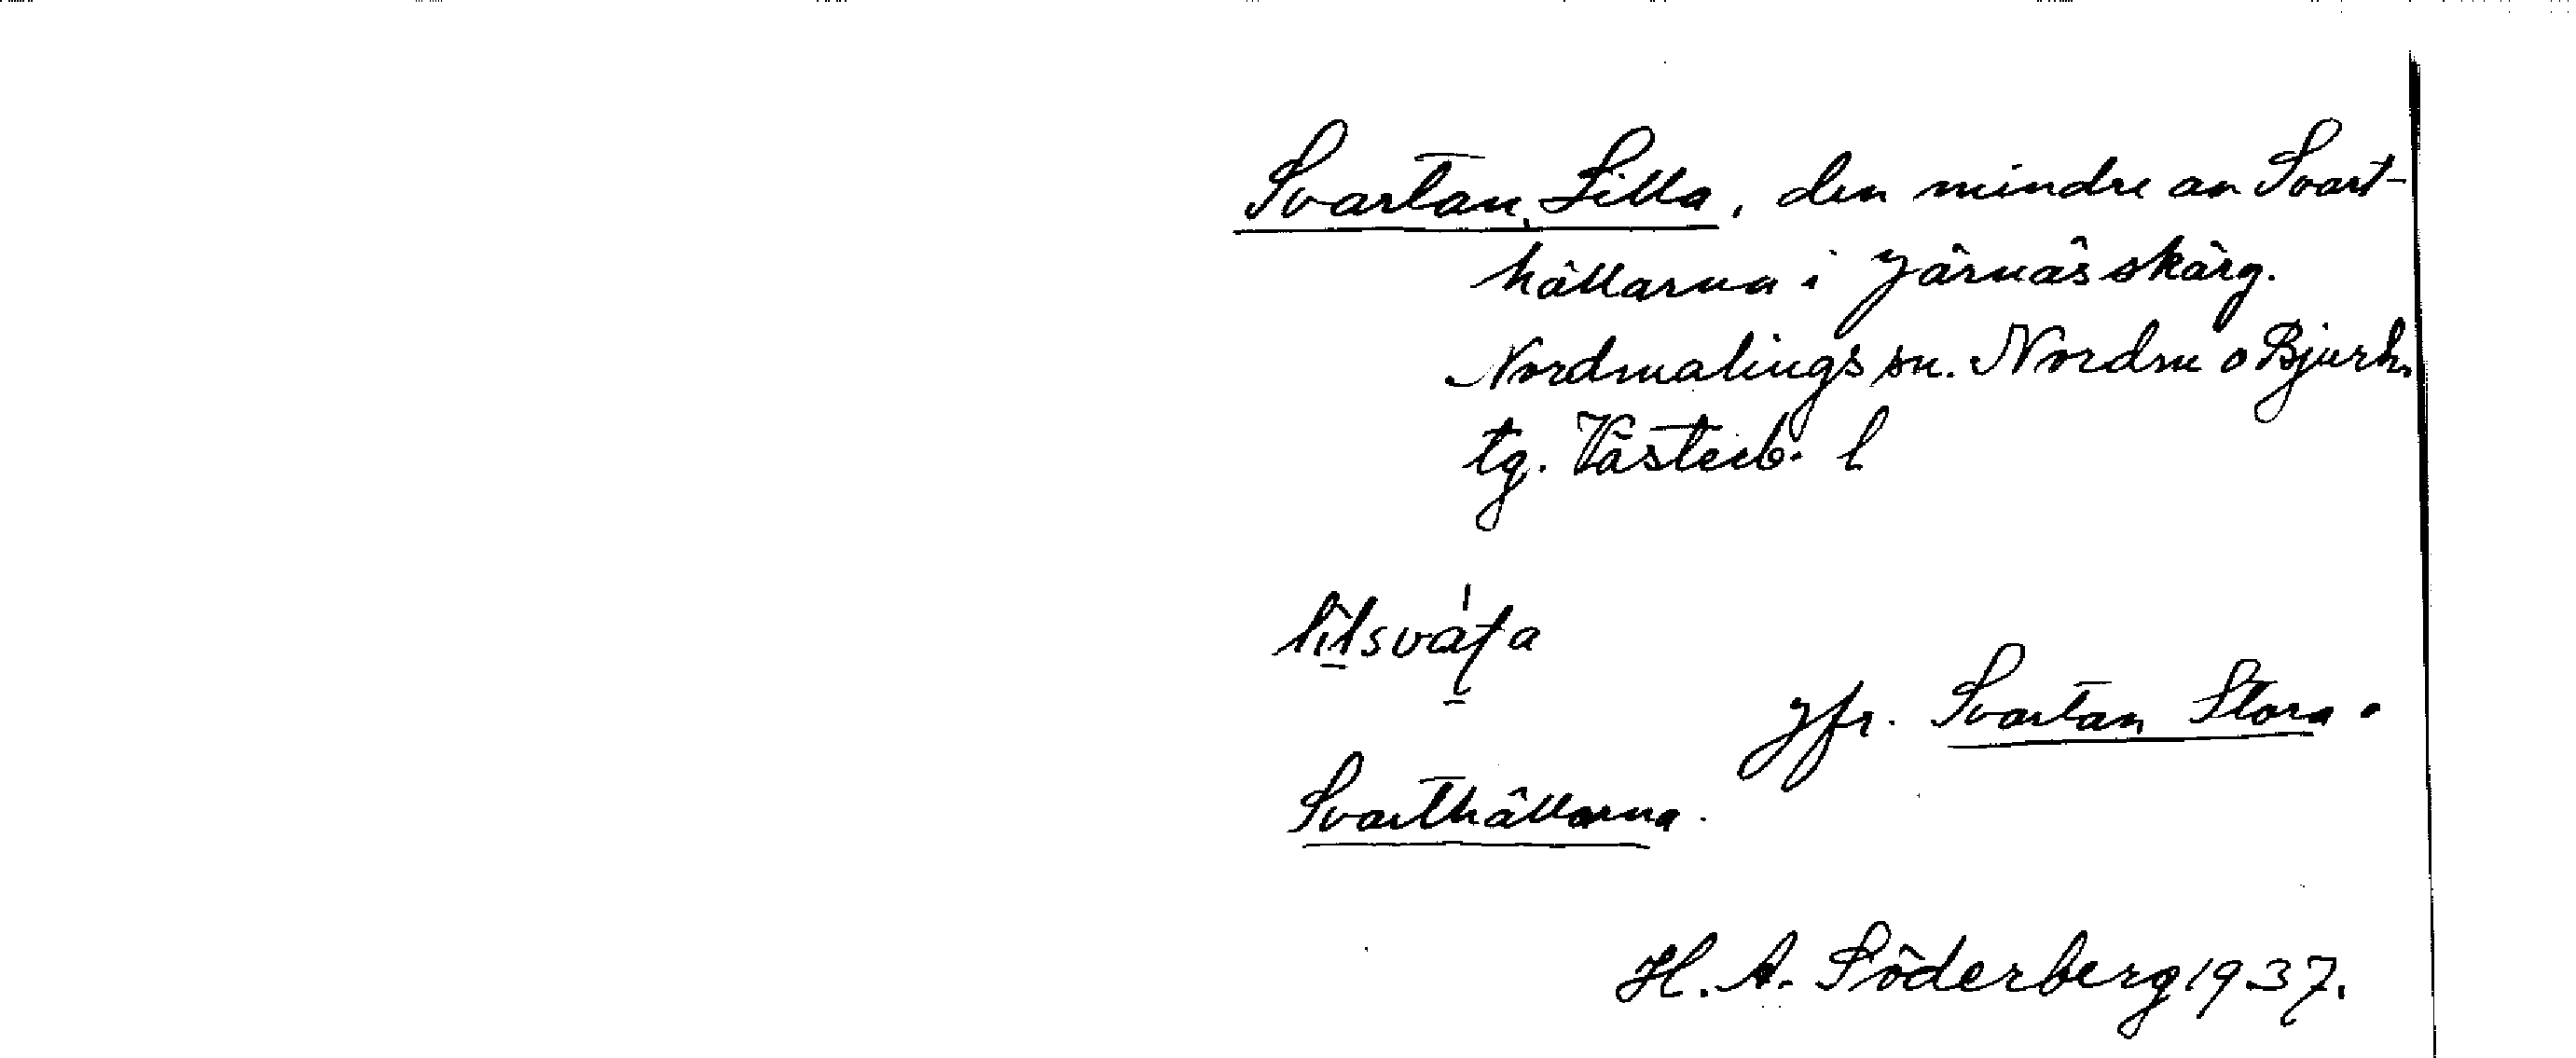 Svartan, Lilla, den mindre av Svart-
hällarna i Järnäs skärg.
Nordmalings sn. Nordm o Bjurh.
tg. Västerb. l
jfr. Svartan Stora.
Svarthällarna.
H. A. Söderberg 1937.